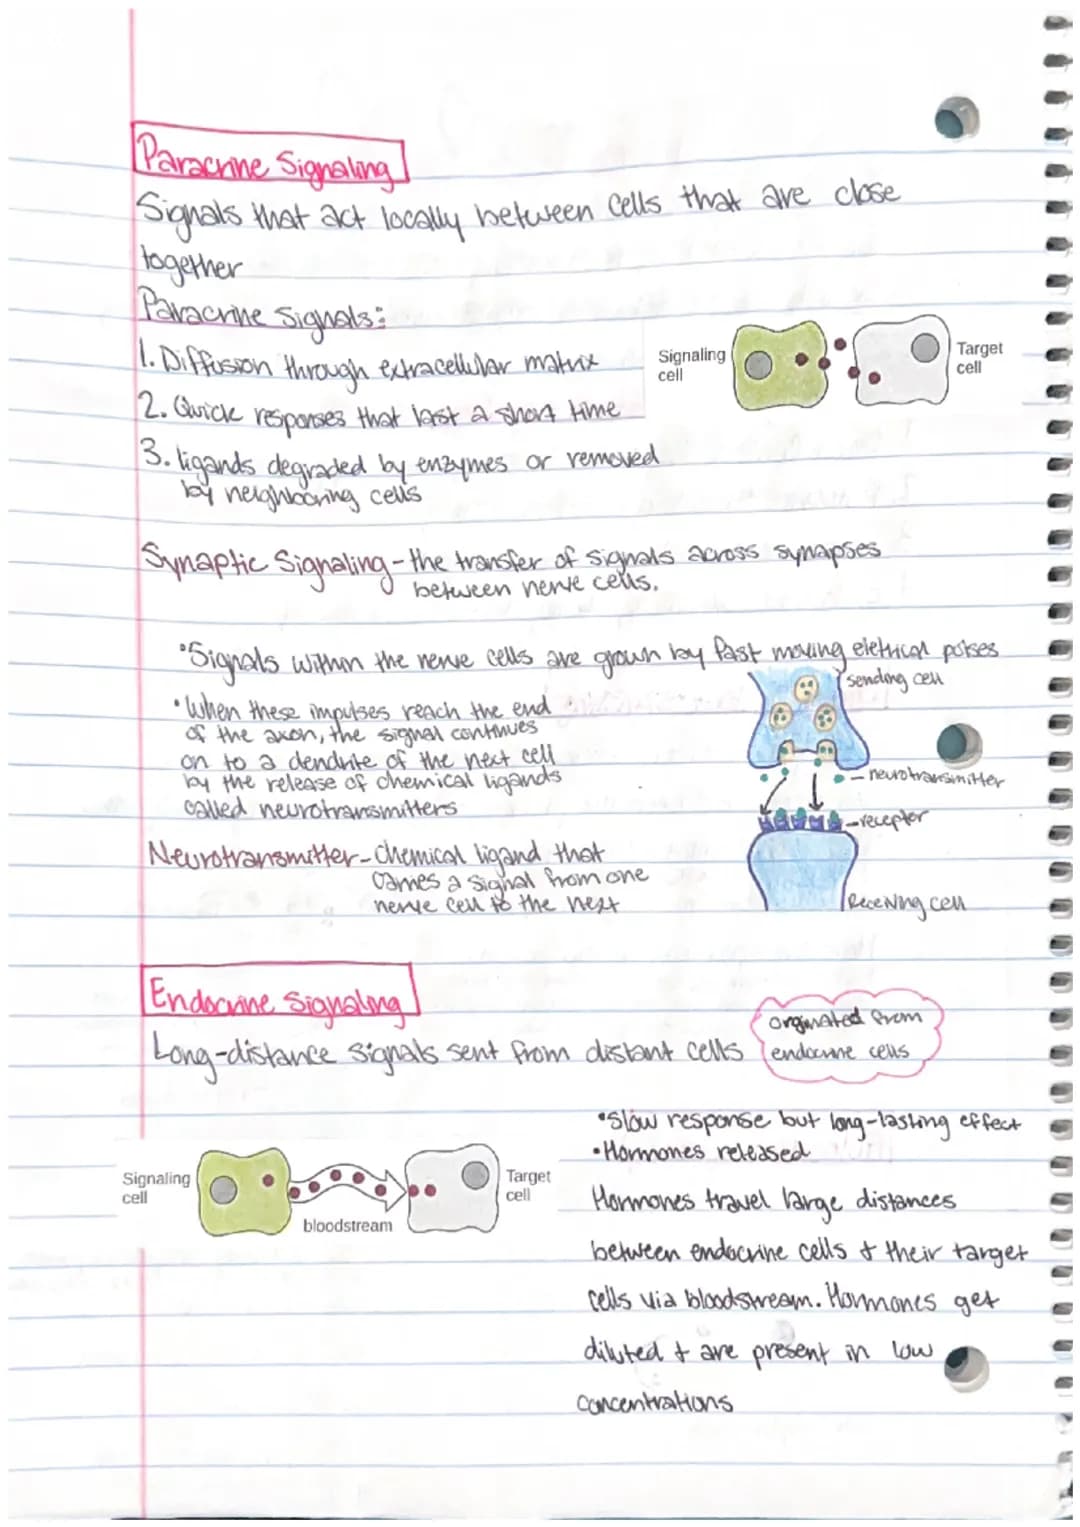 Paracrine Signaling
Signals that act locally between cells that are close
together
Paracrine Signals:
1. Diffusion through extracellular matrix
2. Quick responses that last a short time
3. ligands degraded by enzymes or removed
by neighboring cells
Signaling
cell
Target
cell
Synaptic Signaling - the transfer of signals across synapses
between nerve cells.
•Signals within the nerve cells are grown by fast moving eletrical
sending cell
•When these impulses reach the end
of the axon, the signal continues
on to a dendrite of the next cell
by the release of chemical ligands
called neurotransmitters
- neurotransmitter
-receptor
Neurotransmitter - Chemical ligand that
carries a signal from one
nerve cell to the next
Receiving cell
Endocrine Signaling
Long-distance signals sent from distant cells
orginated from
endocrine cells
•Slow response but long-lasting effect
•Hormones released
Signaling
cell
bloodstream
Target
cell
Hormones travel large distances
between endocrine cells & their target
cells via bloodstream. Hormones get
diluted & are present in low
concentrations